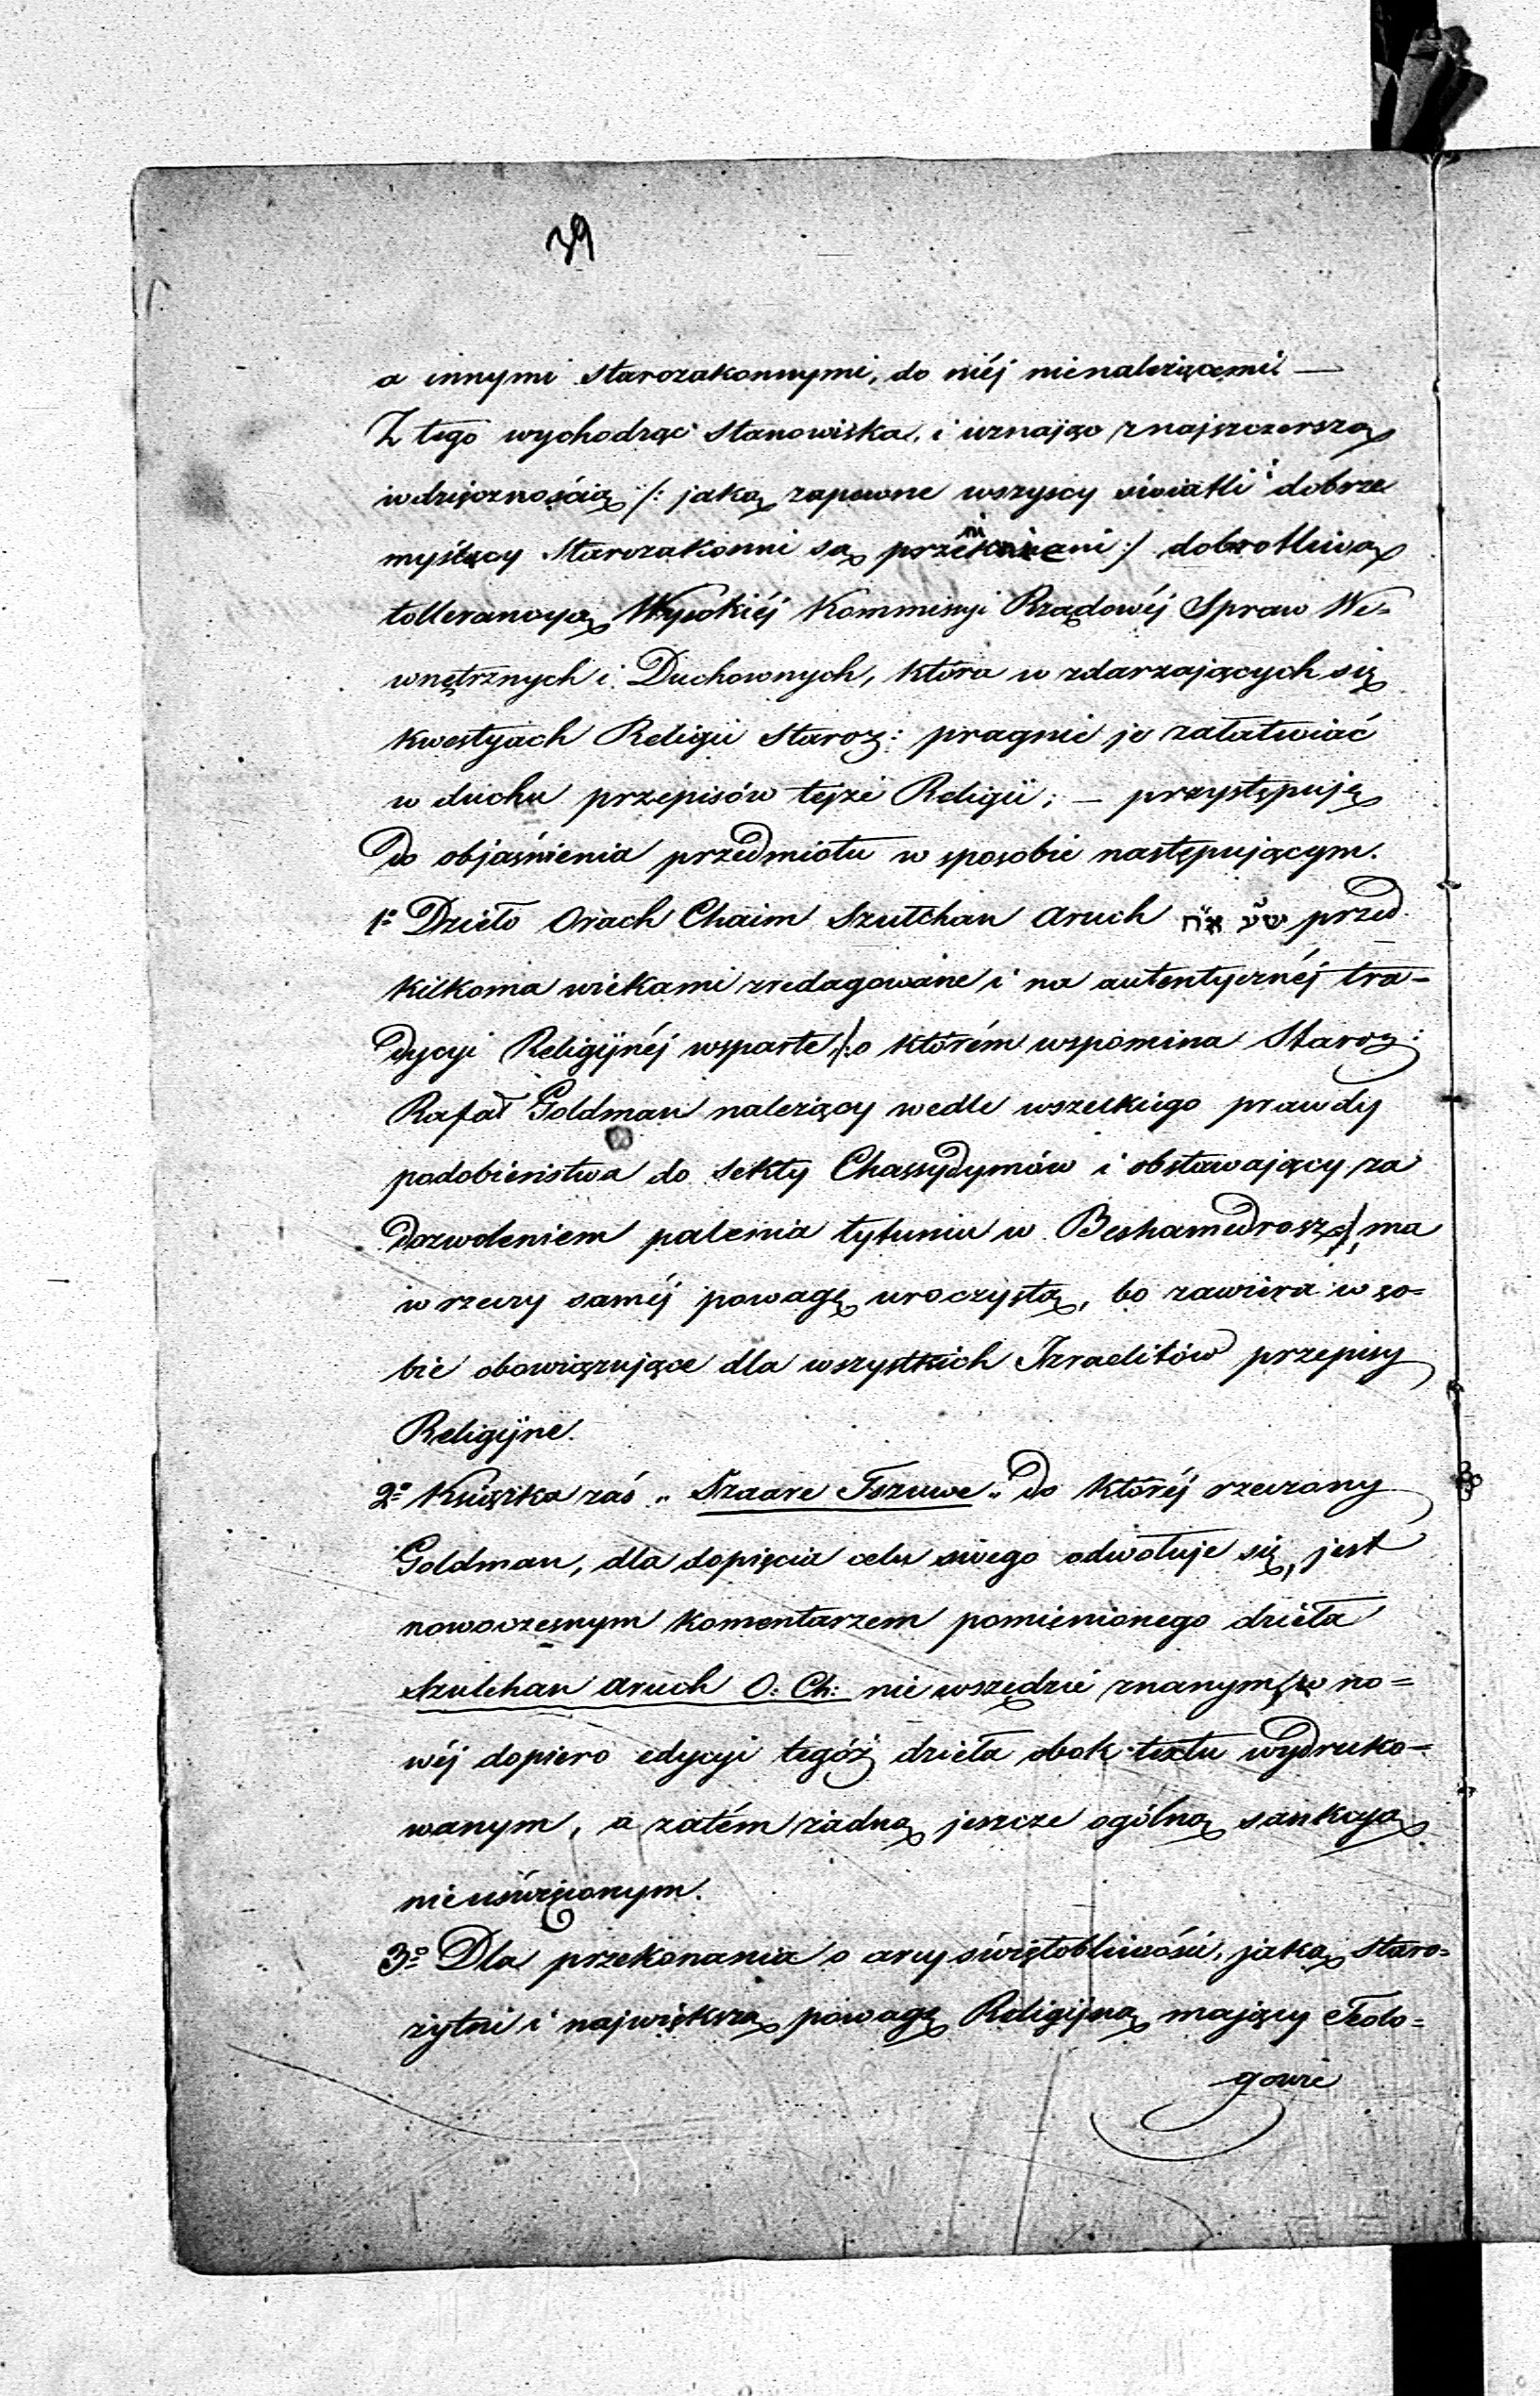 39
a innymi starozakonnymi, do niéj nienależącemi —
Z tego wychodząc stanowiska, i uznając z najszczerszą
wdzięcznością /: jaką zapewne wszyscy światli i dobrze
myślący Starozakonni są :/ dobrotliwą
tollerancyą Wysokiéj Kommissyi Rządowéj Spraw We-
wnętrznych i Duchownych, która w zdarzających się
kwestyach Religii Staroz: pragnie je załatwiać
w duchu przepisów tejże Religii; — przystępuję
do objaśnienia przedmiotu w sposobie następującym.
1o Dzieło Orach Chaim Szulchan Aruch א״ח ש״ע przed
kilkoma wiekami zredagowane i na autentycznéj tra-
dycyi Religijnéj wsparte /: o którém wspomina Staroz:
Rafał Goldman należący wedle wszelkiego prawdy
podobieństwa do sekty Chassydymów i obstawający za
dozwoleniem palenia tytuniu w Beshamedrosz :/, ma
w rzeczy saméj powagę uroczystą, bo zawiera w so-
bie obowiązujące dla wszystkich Izraelitów przepisy
Religijne.
2o Książka zaś „ Szaare Tszuwe „ do któréj rzeczony
Goldman, dla dopięcia celu swego odwołuje się, jest
nowoczesnym komentarzem pomienionego dzieła
Szulchan Aruch O: Ch: nie wszędzie znanym, w no=
wéj dopiero edycyi tegóż dzieła obok textu wydruko=
wanym, a zatém żadną jeszcze ogólną sankcyą
nieuświęconym.
3o Dla przekonania o arcy świętobliwości, jaką staro=
żytni i największą powagę Religijną mający Teolo=
gowie